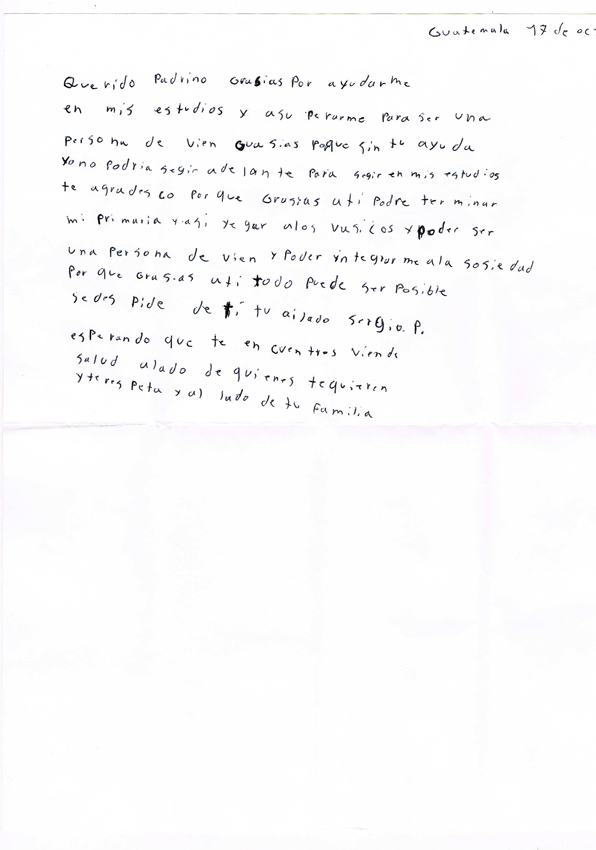 Guatemala 17 de oc
Querido Padrino Grasias Por ayudarme
en mis estudios y asu perarme Para ser una
Persona de vien Grasias Poque sin tu ayuda
Yo no Podria segir ade lan te Para segir en mis estudios
te agrades co Por que Grasias ati Podre ter minar
mi primaria y asi ye gar alos vasicos y poder ser
una Persona de vien y Poder integrar me ala sosiedad
Por que Grasias ati todo Puede ser Posible
se des Pide de ti tu aijado sergio. P.
esPerando que te en cuentres viende
salud alado de quienes te quieren
y te res Peta y al lado de tu Familia